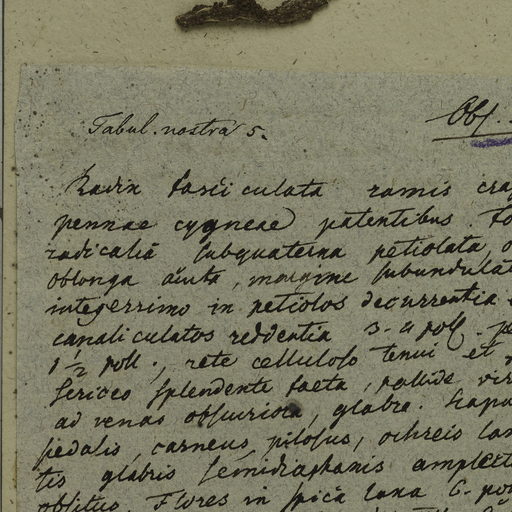 Obs.
Tabul. nostra 5.
Radix fasciculata ramis cra
pennae cygneae patentibus. Fo
radicalia subquaterna petiolata, o
oblonga acuta, margine subundulat
integerrimo in petiolos decurrentia
canaliculatos reddentia 3-4 poll. p
1 1/2 poll., rete celluloso tenui et
sericeo splendente laeta, pallide vir
ad venas obscuriora, glabra. Scapu
pedalis, carneus, pilosus, ochreis lan
tis glabris semidiaphanis amplect
oblitus. Flores in spica laxa 6. po